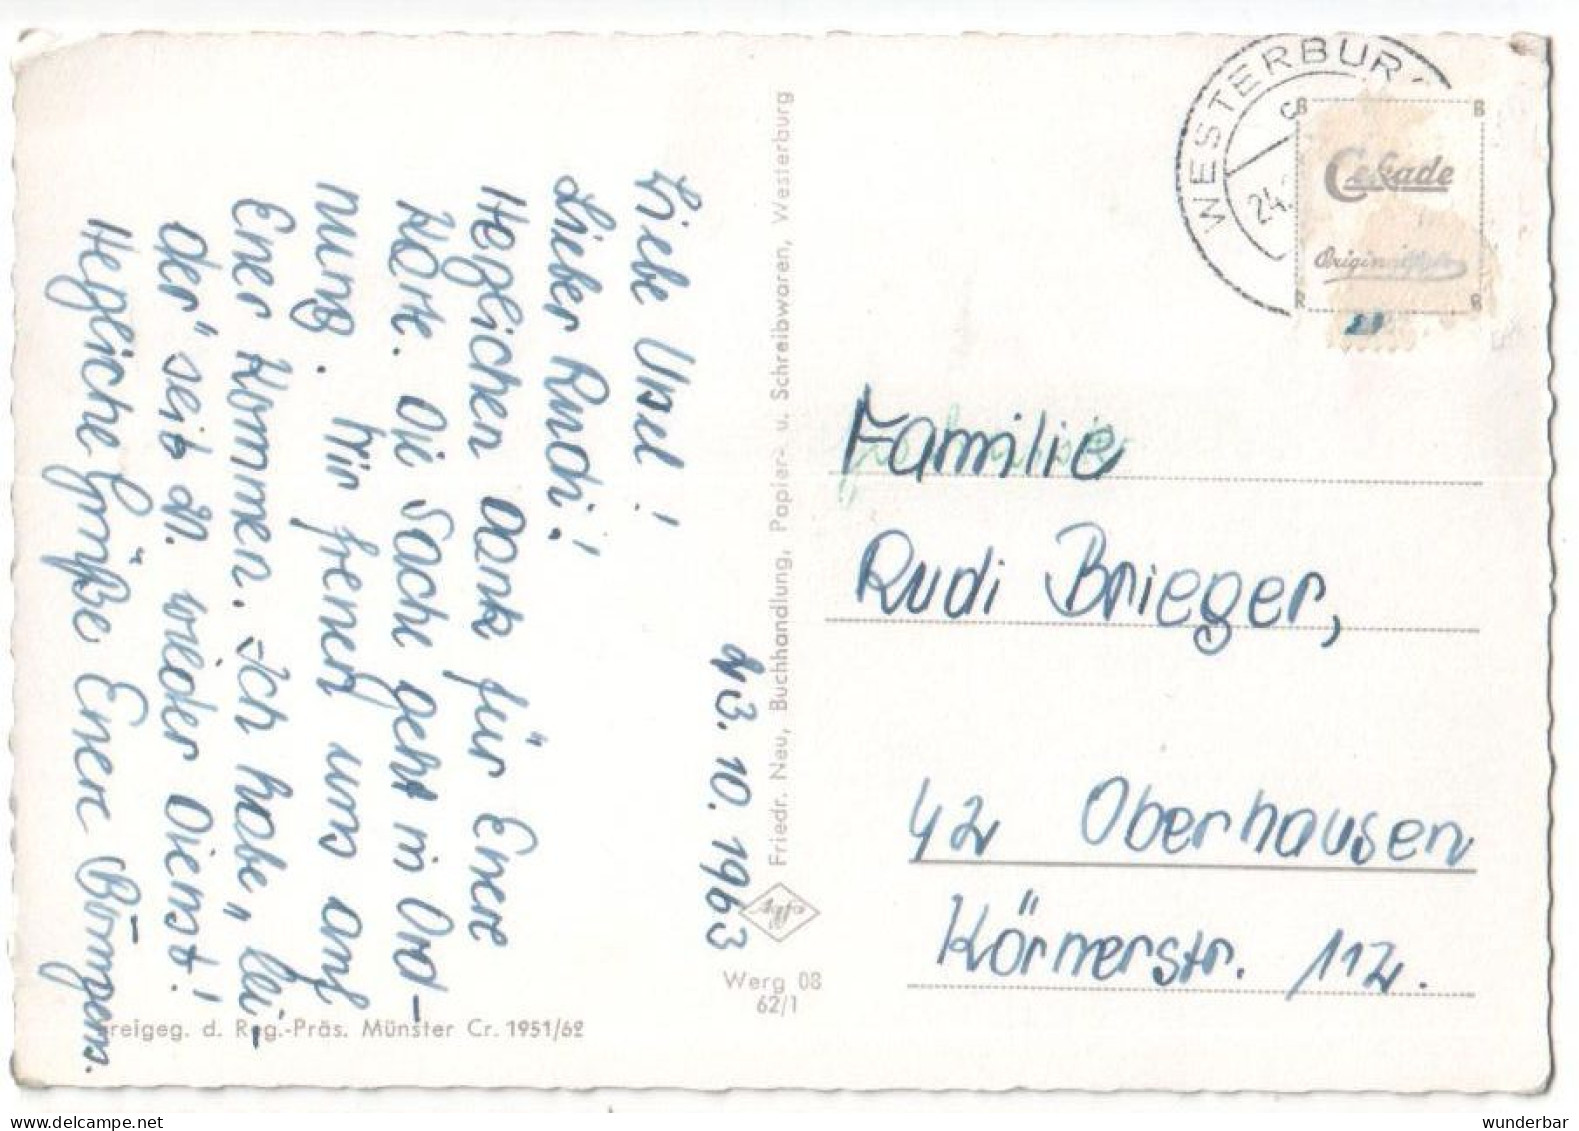 Liebe Ursel!
Lieber Rudi!
Herzlichen Dank für Euere
Karte. Die Sache geht in Ord-
nung. Wir freuen uns auf
Euer Kommen. Ich habe „lei-
der" seit 21. wieder Dienst!
Herzliche Grüße Euere Büngers.
23.10.1963
Friedr. Neu, Buchhandlung, Papier- u. Schreibwaren, Westerburg
Agfa
Werg 08
62/1
Freigeg. d. Reg.-Präs. Münster Cr. 1951/62
WESTERBUR
24.
Cekade
Original
Familie
Rudi Brieger,
42 Oberhausen
Körnerstr. 112.
www.delcampe.net
wunderbar